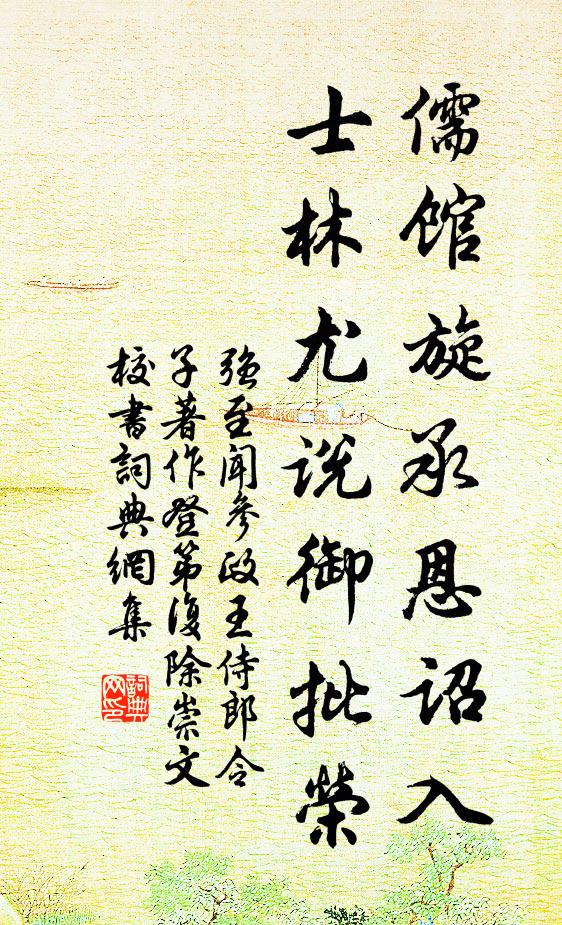 儒馆旋承恩诏入
士林尤说御批荣
强至闻参政王侍郎令
子著作登第复除崇文
校书词典网集
词典网印